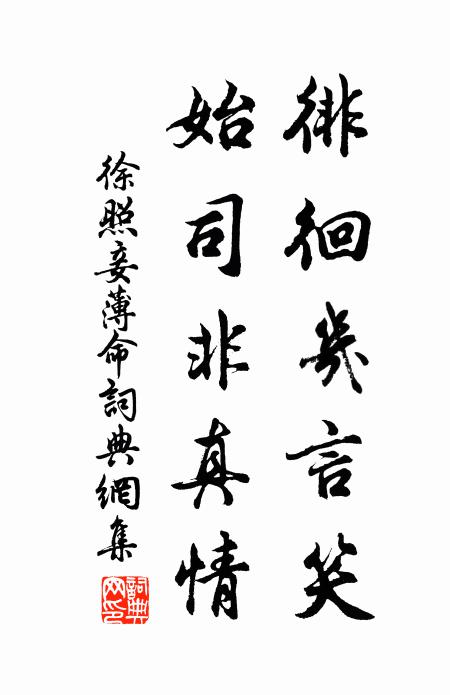 徘徊幾言笑
始司非真情
徐照妾薄命詞典網集
詞典網印